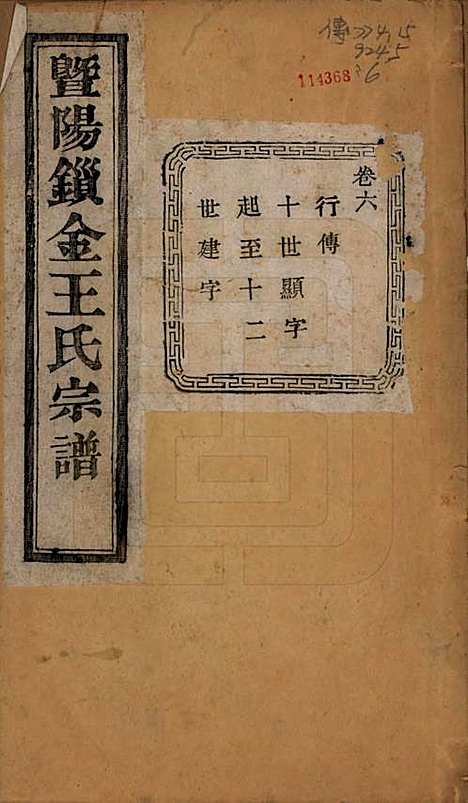 暨陽鎻金王氏宗譜
卷六
行傳
十世顯字
起至十二
世建字
傳 774.15
9245
:6
114368